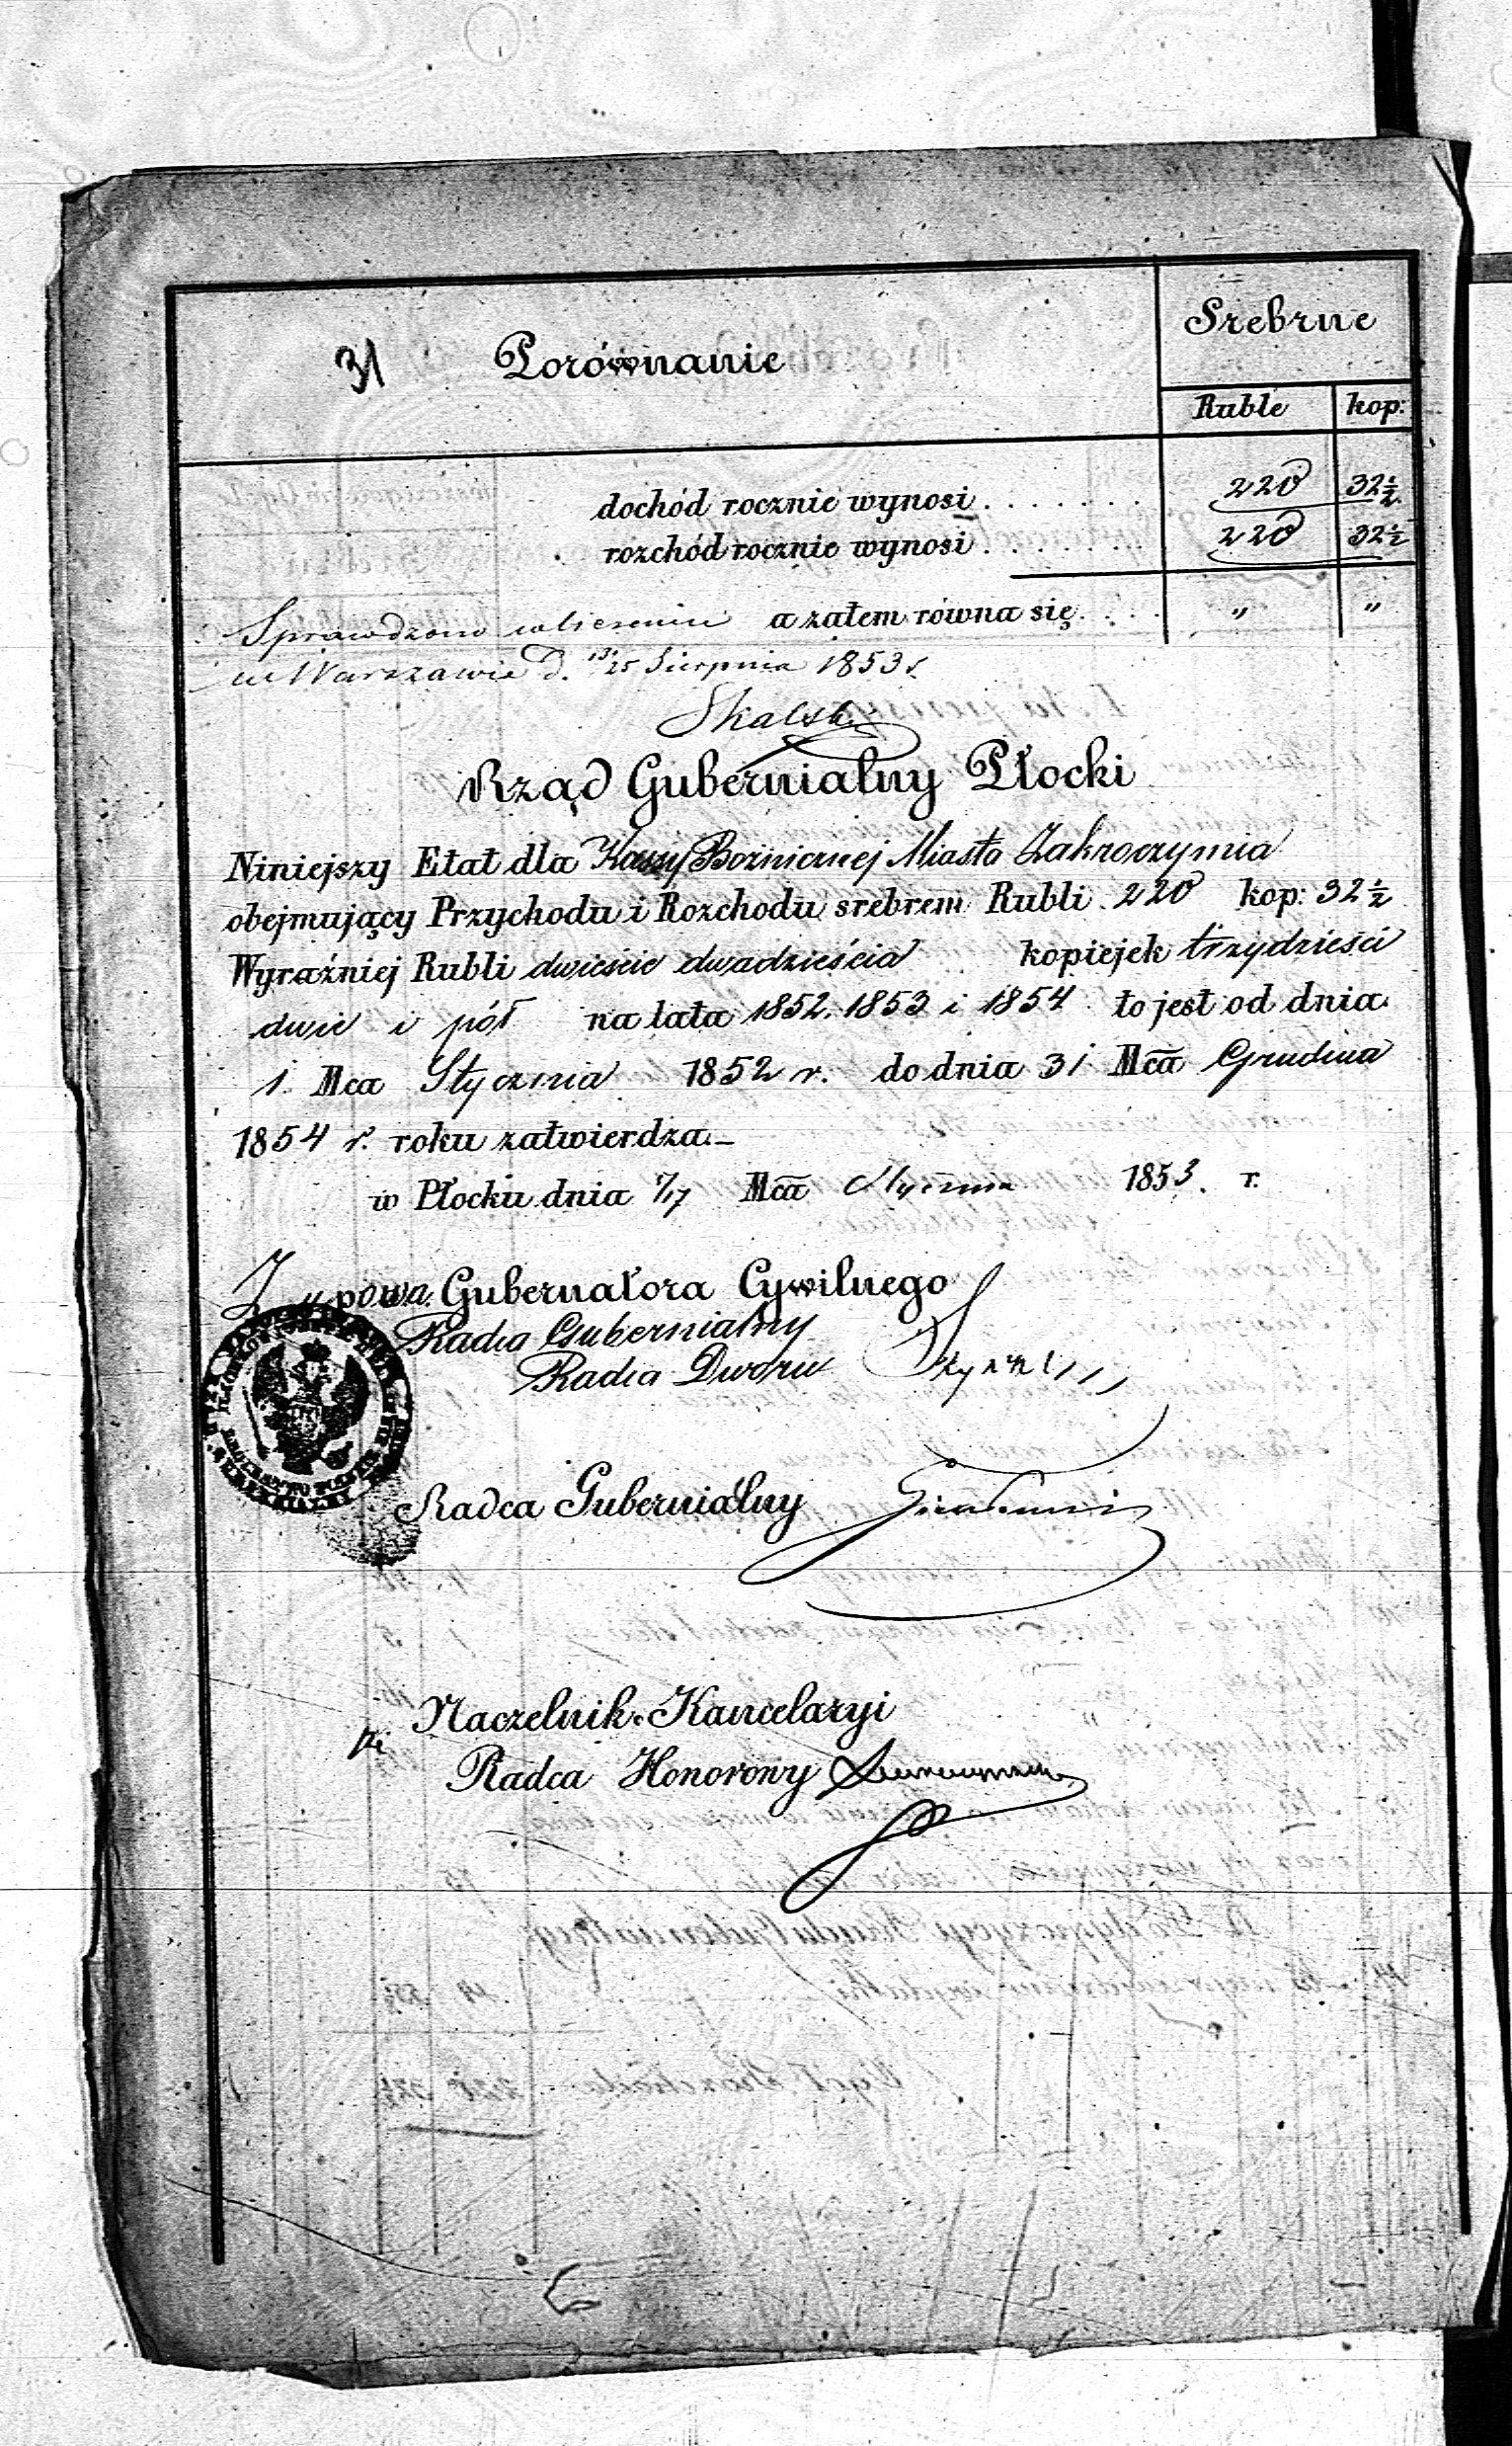 31 Porównanie
Srebrne
Ruble kop:
dochód rocznie wynosi . . . . . . . 220 32½
rozchód rocznie wynosi . . . . . . . 220 32½
Sprawdzono w liczeniu a zatem równa się . . . . " "
w Warszawie d. 13/25 Sierpnia 1853 r.
Skalski
Rząd Gubernialny Płocki
Niniejszy Etat dla Kassy Bożnicznej Miasta Zakroczymia
obejmujący Przychodu i Rozchodu srebrem Rubli 220 kop: 32½
Wyraźniej Rubli dwieście dwadzieścia kopiejek trzydzieści
dwie i pół na lata 1852, 1853 i 1854 to jest od dnia
1 Mca Stycznia 1852 r. do dnia 31 Mca Grudnia
1854 r. roku zatwierdza.—
w Płocku dnia 7/17 Mca Stycznia 1853 r.
Z upowa. Gubernatora Cywilnego
Radca Gubernialny
Radca Dworu
Radca Gubernialny
Naczelnik Kancelaryi
Radca Honorowy